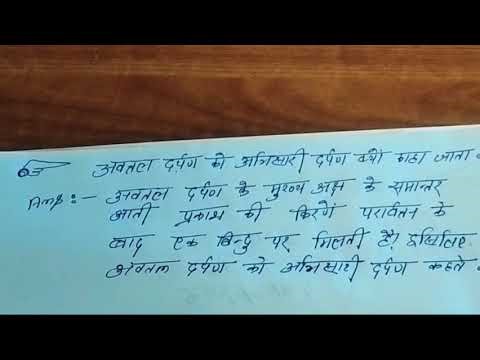 अवतल दर्पण को अभिसारी दर्पण क्यों कहा जाता
Ans :- अवतल दर्पण के मुख्य अक्ष के समान्तर
आती प्रकाश की किरणें परावर्तन के
बाद एक बिन्दु पर मिलती है। इसिलिए
अवतल दर्पण को अभिसारी दर्पण कहते